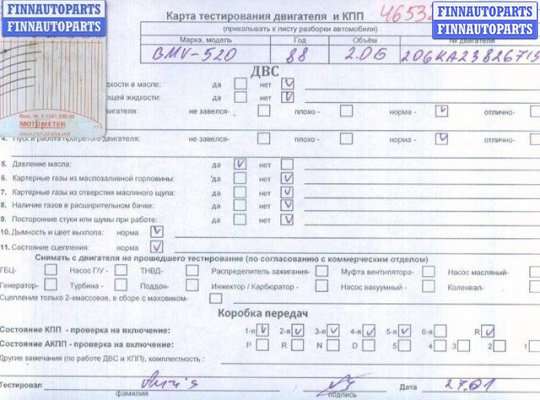 FINNAUTOPARTS
FINNAUTOPARTS
FINNAUTOPARTS
FINNAUTOPARTS
Карта тестирования двигателя и КПП
(прикольвать к листу разборки автомобиля)
Марка, модель Год Объём № двигателя
BMV-520 88 2.0б
ДВС
дкости в масле: да нет V
щей жидкости: да нет V
вигателя: не завелся- плохо - норма - V отлично-
MOTOMETER
4. Пуск и работа прогретого двигателя: не завелся- плохо - норма - V отлично-
5. Давление масла: да V нет
6. Картерные газы из маслозаливной горловины: да нет V
7. Картерные газы из отверстия масляного щупа: да нет V
8. Наличие газов в расширительном бачке: да нет V
9. Посторонние стуки или шумы при работе: да нет V
10. Дымность и цвет выхлопа: норма V
11. Состояние сцепления: норма V
Снимать с двигателя на прошедшего тестирование (по согласованию с коммерческим отделом)
ГБЦ- Насос Г/У - ТНВД- Распределитель зажигания- Муфта вентилятора- Насос масляный-
Генератор- Турбина - Поддон- Инжектор / Карбюратор - Насос вакуумный - Коленвал-
Сцепление только 2-хмассовое, в сборе с маховиком-
Коробка передач
Состояние КПП - проверка на включение: 1-я V 2-я V 3-я V 4-я V 5-я V 6-я R V
Состояние АКПП - проверка на включение: P R N D 5 4 3 2 1
Другие замечания (по работе ДВС и КПП), комплектность :
Тестировал Дата 27.01
фамилия подпись